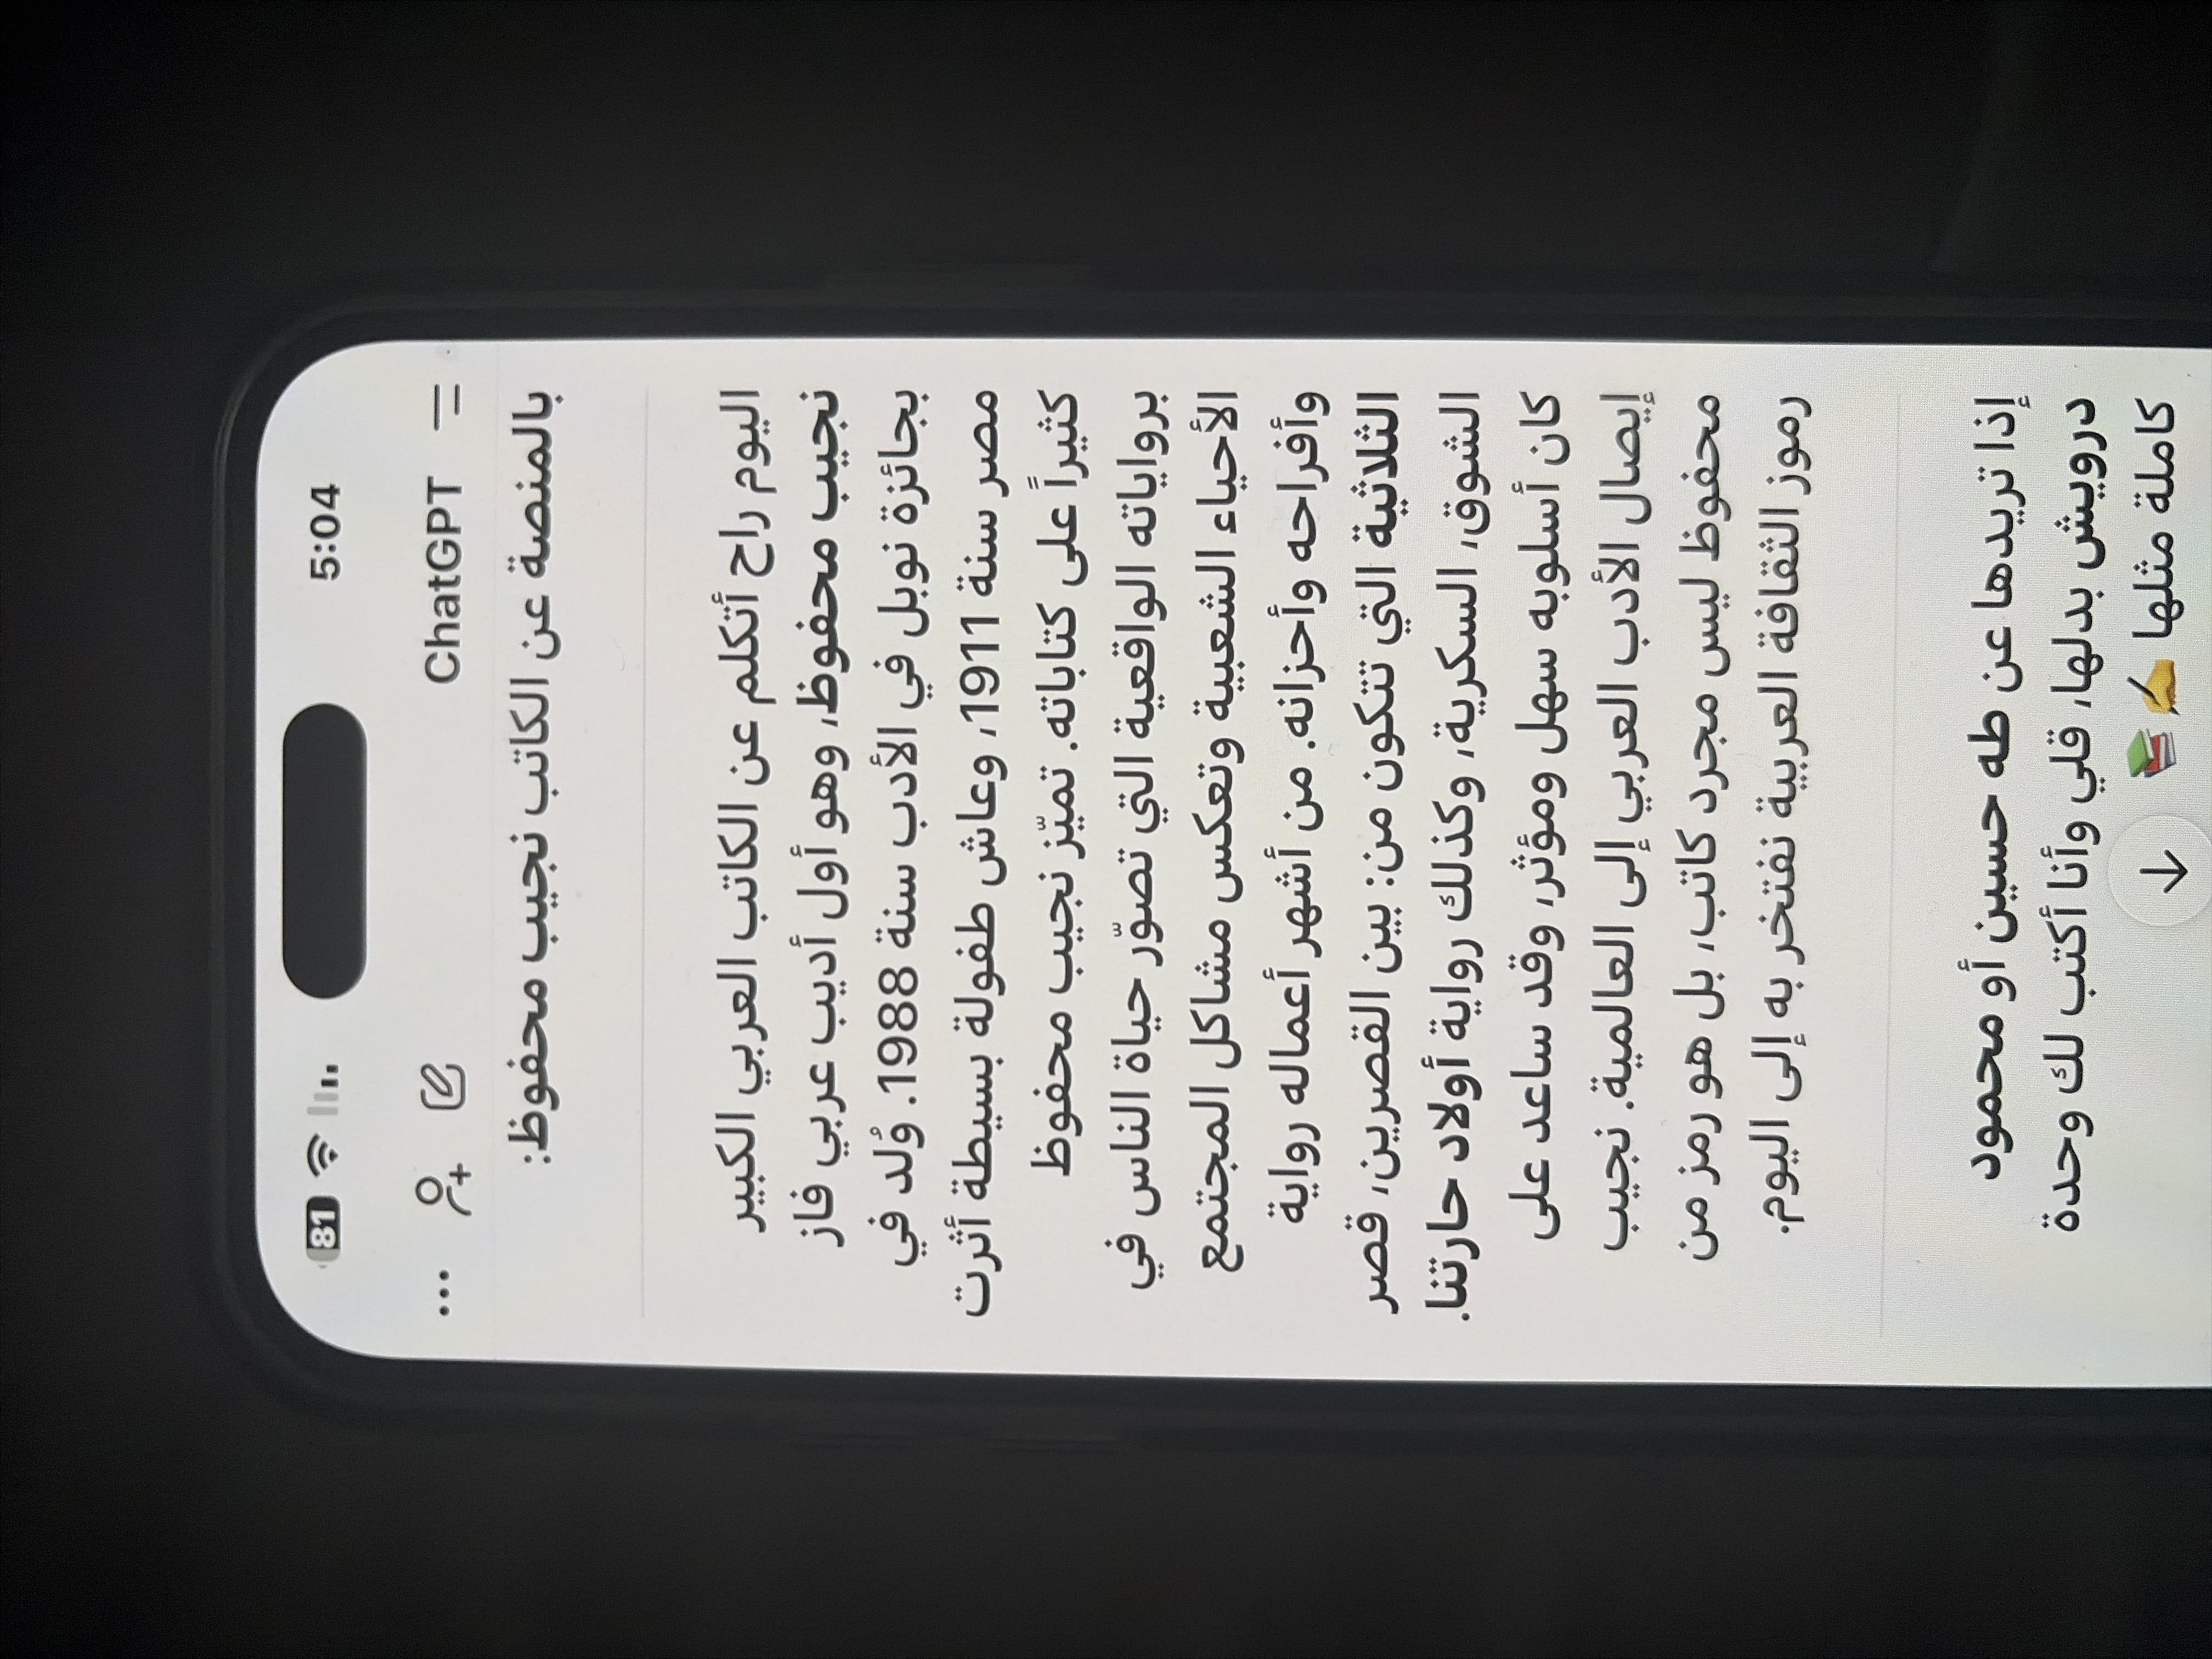 5:04
81
ChatGPT
بالمنصة عن الكاتب نجيب محفوظ:
اليوم راح أتكلم عن الكاتب العربي الكبير
نجيب محفوظ، وهو أول أديب عربي فاز
بجائزة نوبل في الأدب سنة 1988. وُلد في
مصر سنة 1911، وعاش طفولة بسيطة أثرت
كثيراً على كتاباته. تميّز نجيب محفوظ
برواياته الواقعية التي تصوّر حياة الناس في
الأحياء الشعبية وتعكس مشاكل المجتمع
وأفراحه وأحزانه. من أشهر أعماله رواية
الثلاثية التي تتكون من: بين القصرين، قصر
الشوق، السكرية، وكذلك رواية أولاد حارتنا.
كان أسلوبه سهل ومؤثر، وقد ساعد على
إيصال الأدب العربي إلى العالمية. نجيب
محفوظ ليس مجرد كاتب، بل هو رمز من
رموز الثقافة العربية نفتخر به إلى اليوم.
إذا تريدها عن طه حسين أو محمود
درويش بدلها، قلي وأنا أكتب لك وحدة
كاملة مثلها ✍️📚